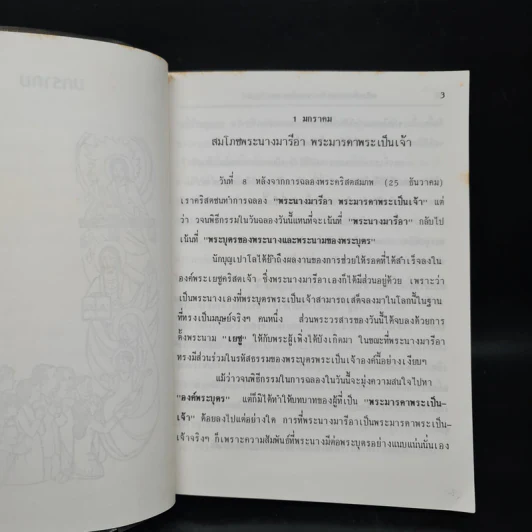 มกราคม
3
1 มกราคม
สมโภชพระนางมารีอา พระมารดาพระเป็นเจ้า
วันที่ 8 หลังจากการฉลองพระคริสตสมภพ (25 ธันวาคม)
เราคริสตชนทำการฉลอง "พระนางมารีอา พระมารดาพระเป็นเจ้า" แต่
ว่า วจนพิธีกรรมในวันฉลองวันนี้แทนที่จะเน้นที่ "พระนางมารีอา" กลับไป
เน้นที่ "พระบุตรของพระนางและพระนามของพระบุตร"
นักบุญเปาโลได้ย้ำถึงผลงานของการช่วยให้รอดที่ได้สำเร็จลงใน
องค์พระเยซูคริสตเจ้า ซึ่งพระนางมารีอาเองก็ได้มีส่วนอยู่ด้วย เพราะว่า
เป็นพระนางเองที่พระบุตรพระเป็นเจ้าสามารถเสด็จลงมาในโลกนี้ในฐาน
ที่ทรงเป็นมนุษย์จริงๆ คนหนึ่ง ส่วนพระวรสารของวันนี้ได้จบลงด้วยการ
ตั้งพระนาม "เยซู" ให้กับพระผู้เพิ่งได้บังเกิดมา ในขณะที่พระนางมารีอา
ทรงมีส่วนร่วมในรหัสธรรมของพระบุตรพระเป็นเจ้าองค์นี้อย่างเงียบๆ
แม้ว่าวจนพิธีกรรมในการฉลองในวันนี้จะมุ่งความสนใจไปหา
"องค์พระบุตร" แต่ก็มิได้ทำให้บทบาทของผู้ที่เป็น "พระมารดาพระเป็น-
เจ้า" ด้อยลงไปแต่อย่างใด การที่พระนางมารีอาเป็นพระมารดาพระเป็น-
เจ้าจริงๆ ก็เพราะความสัมพันธ์ที่พระนางมีต่อพระบุตรอย่างแนบแน่นนั่นเอง